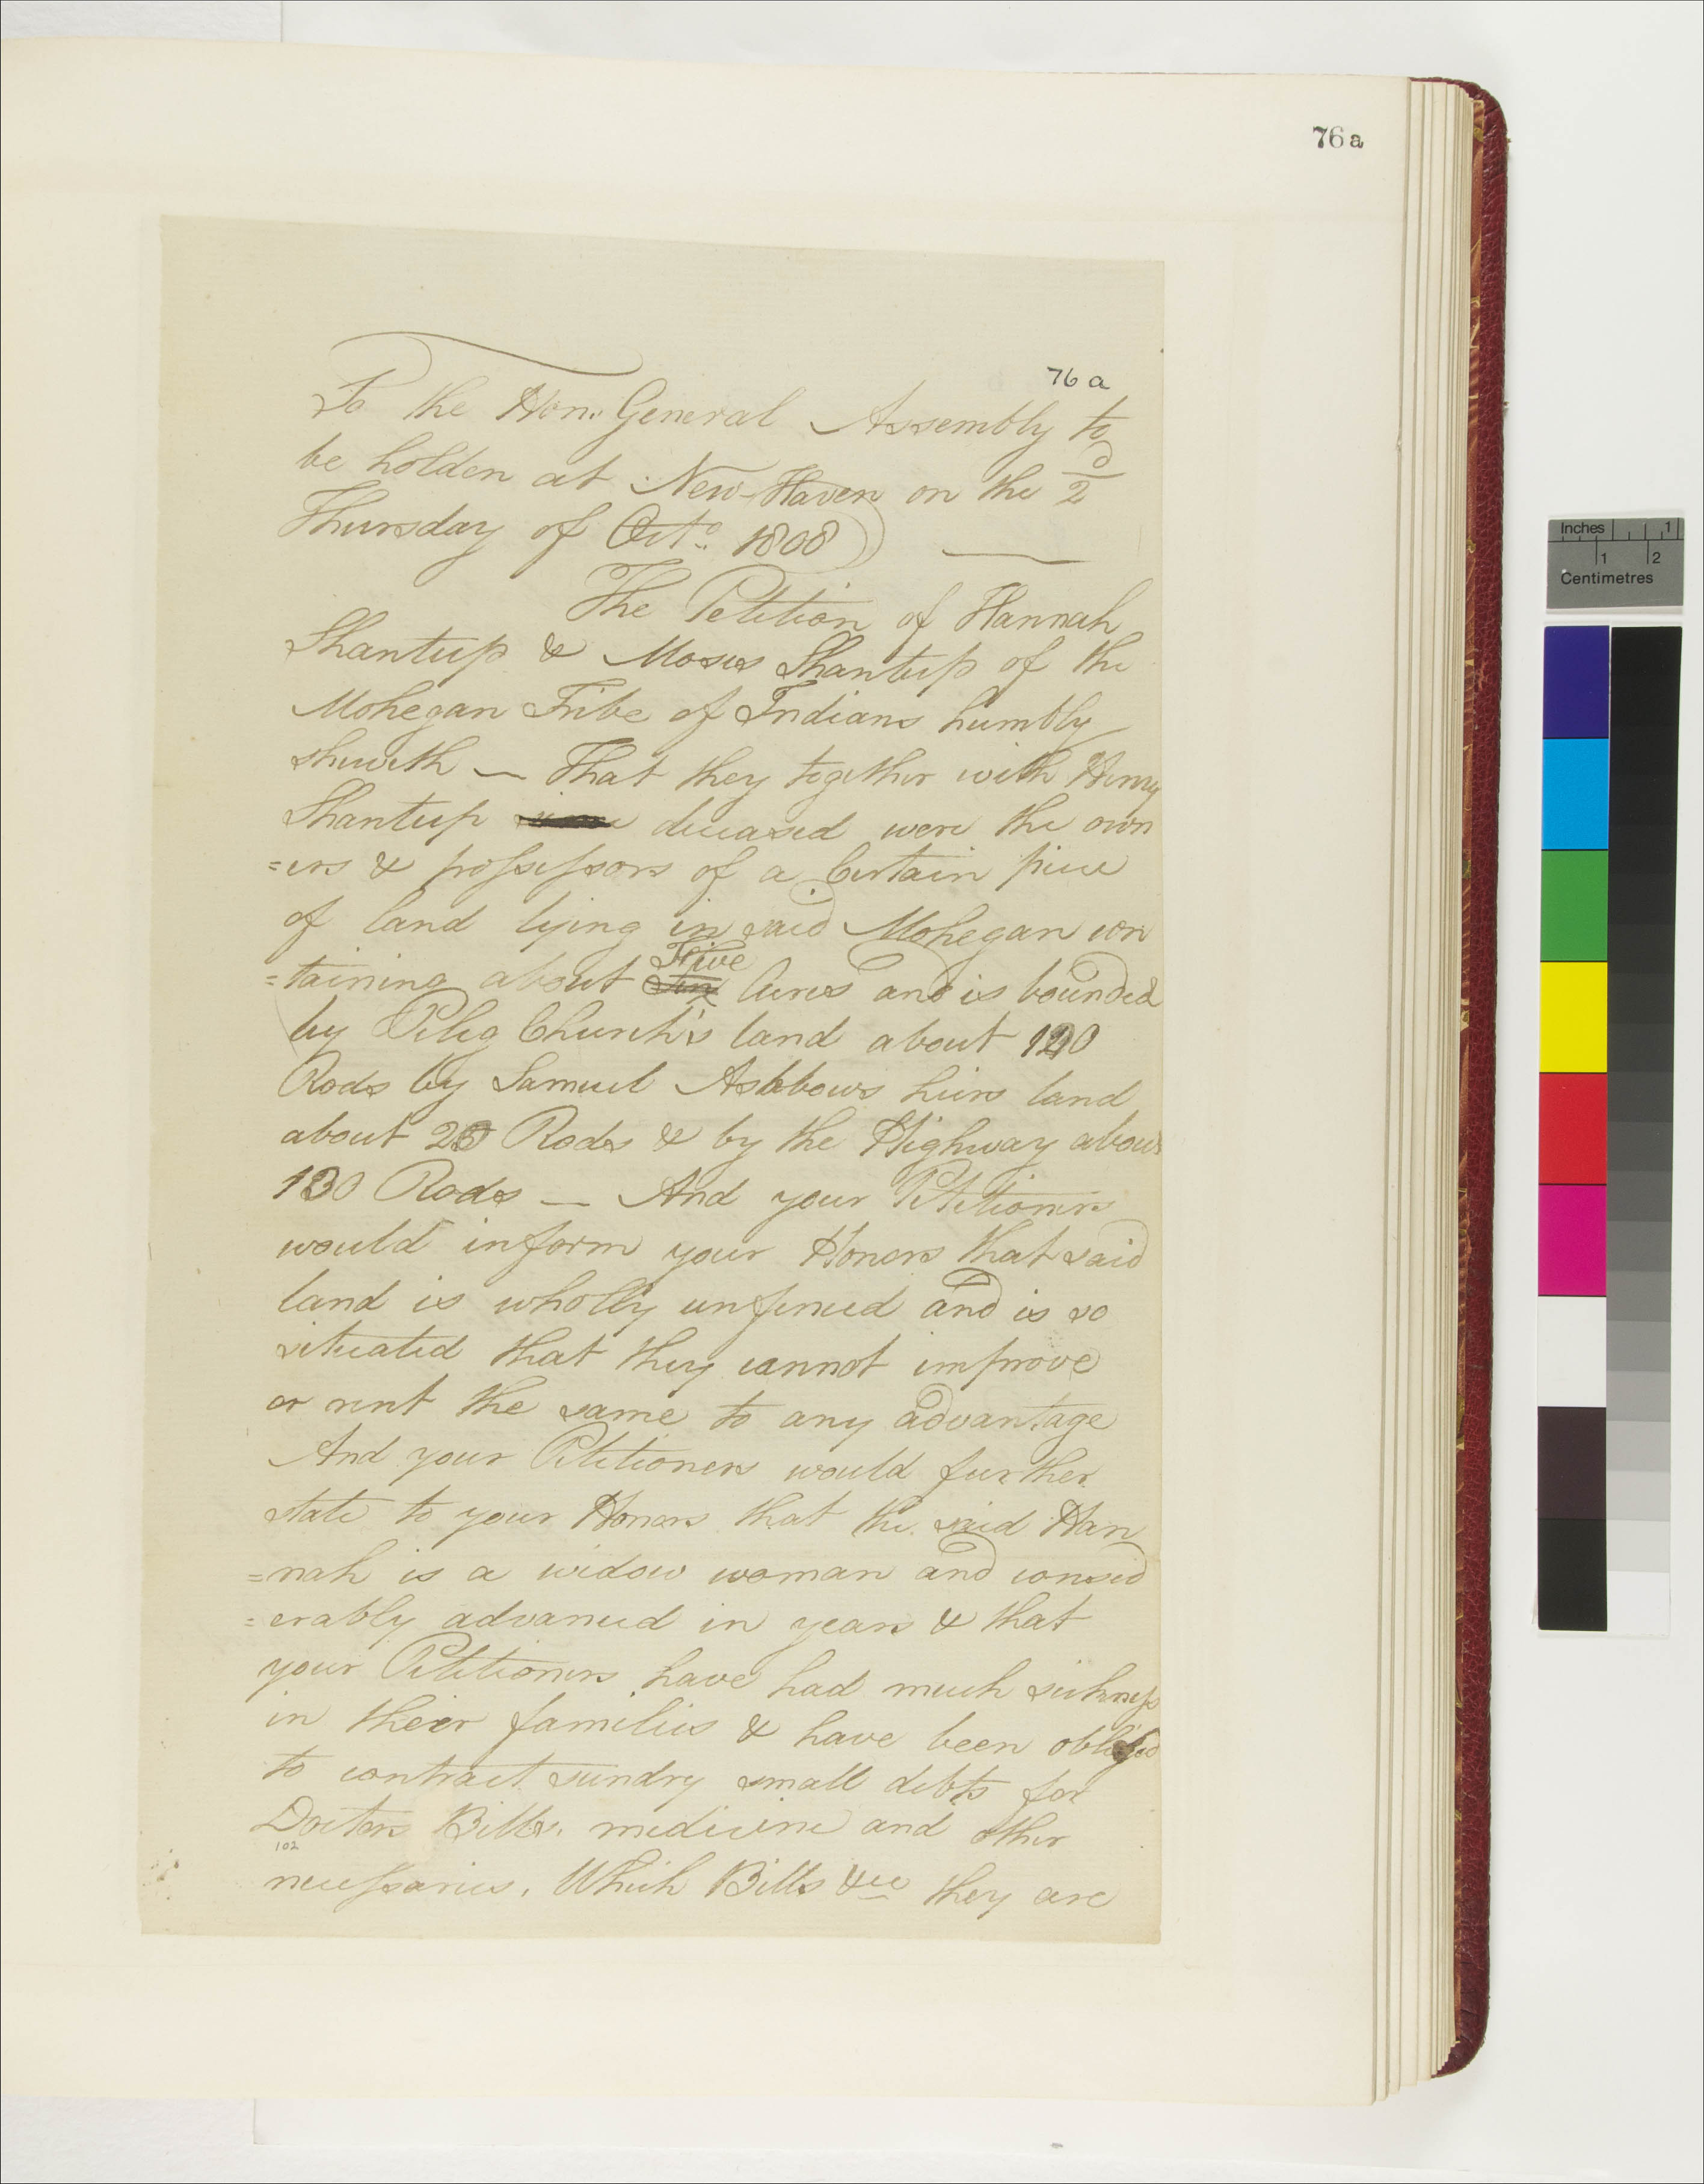 76 a
76 a
To the Hon. General Assembly to
be holden at New-Haven on the 2d
Thursday of Octo. 1808) —
The Petition of Hannah
Shantup & Moses Shantup of the
Mohegan Tribe of Indians humbly
sheweth — That they together with Henry
Shantup deceased were the own
=ers & possessors of a Certain piece
of land lying in said Mohegan con
Five
=taining about Acres and is bounded
by Peleg Church's land about
Rods by Samuel Ashbows heirs land
about Rods & by the Highway about
130 Rods — And your Petitioners
would inform your Honors that said
land is wholly unfenced and is so
situated that they cannot improve
or rent the same to any advantage
And your Petitioners would further
state to your Honors that the said Han
=nah is a widow woman and consid
=erably advanced in years & that
your Petitioners have had much sickness
in their families & have been obliged
to contract sundry small debts for
Doctors Bills. medicine and other
102
necessaries. Which Bills &cc they are
Inches 1
1 2
Centimetres